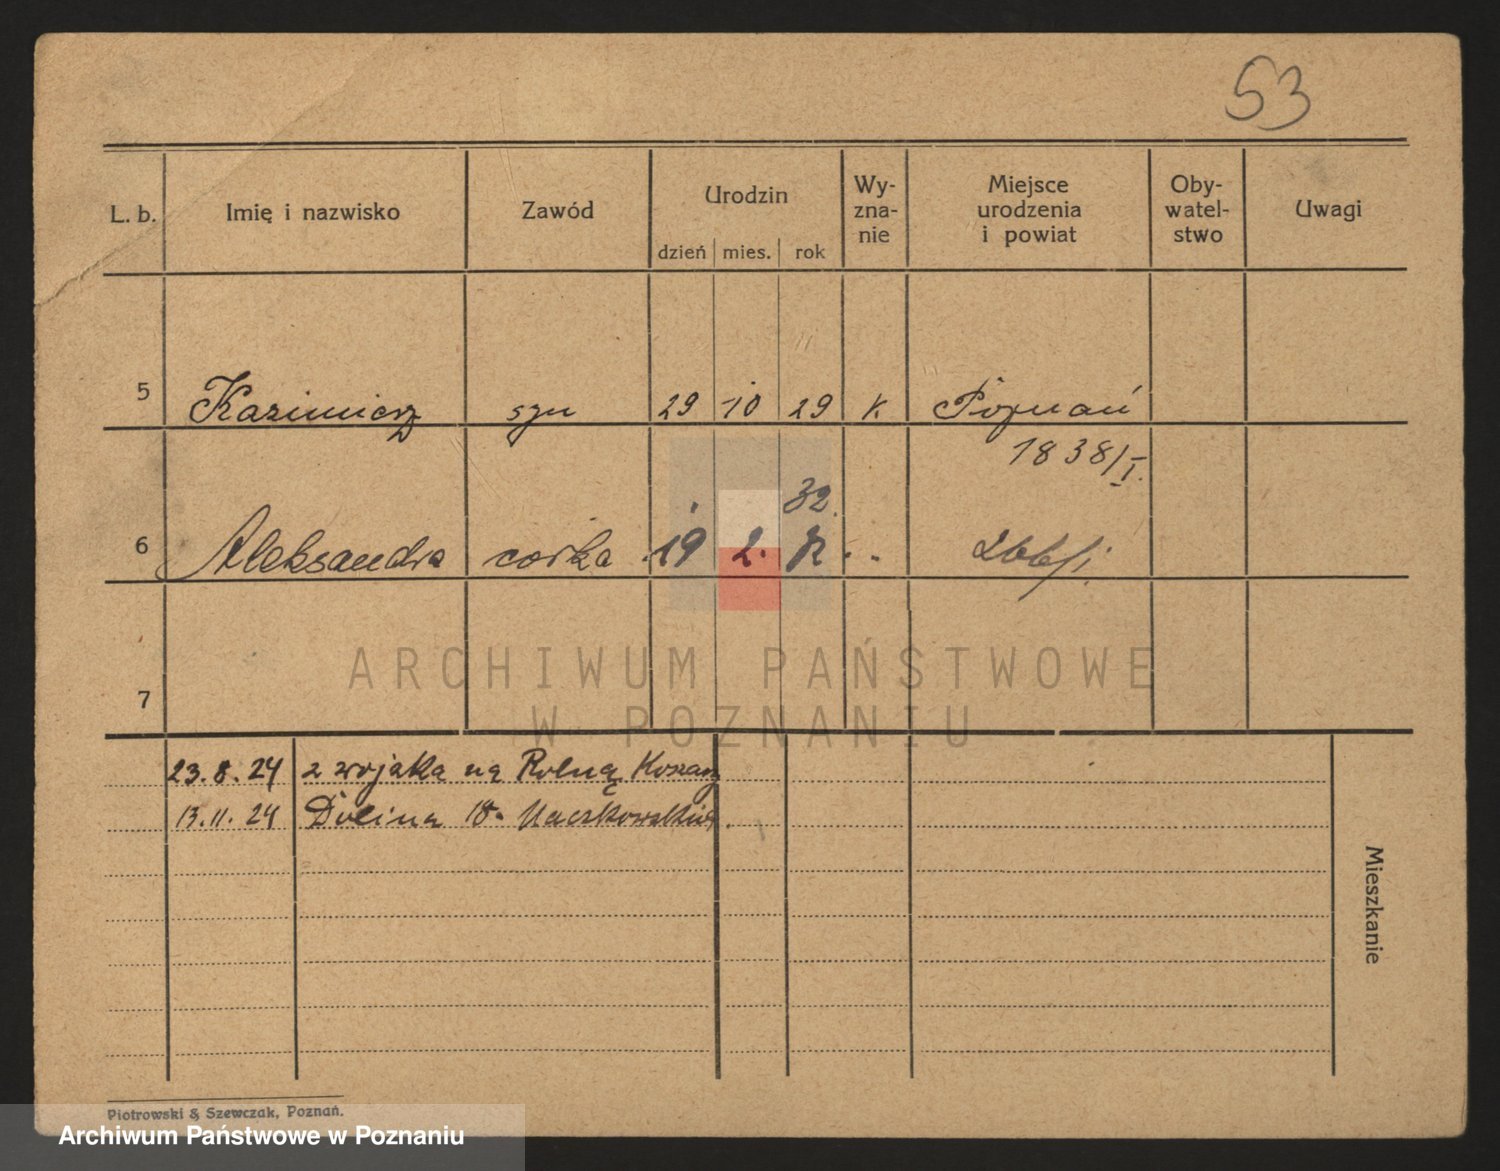 53
L. b. Imię i nazwisko Zawód Urodzin Wy- Miejsce Oby- Uwagi
zna- urodzenia watel-
nie i powiat stwo
dzień mies. rok
5 Kazimierz syn 29 10 29 k. Poznań
1838/I.
32.
6 Aleksandra córka 19 2.
7
ARCHIWUM PAŃSTWOWE
W POZNANIU
23.8.24 z wojska na Rolną Koszary
13.11.24 Dolina 18.
Mieszkanie
Piotrowski & Szewczak, Poznań.
Archiwum Państwowe w Poznaniu